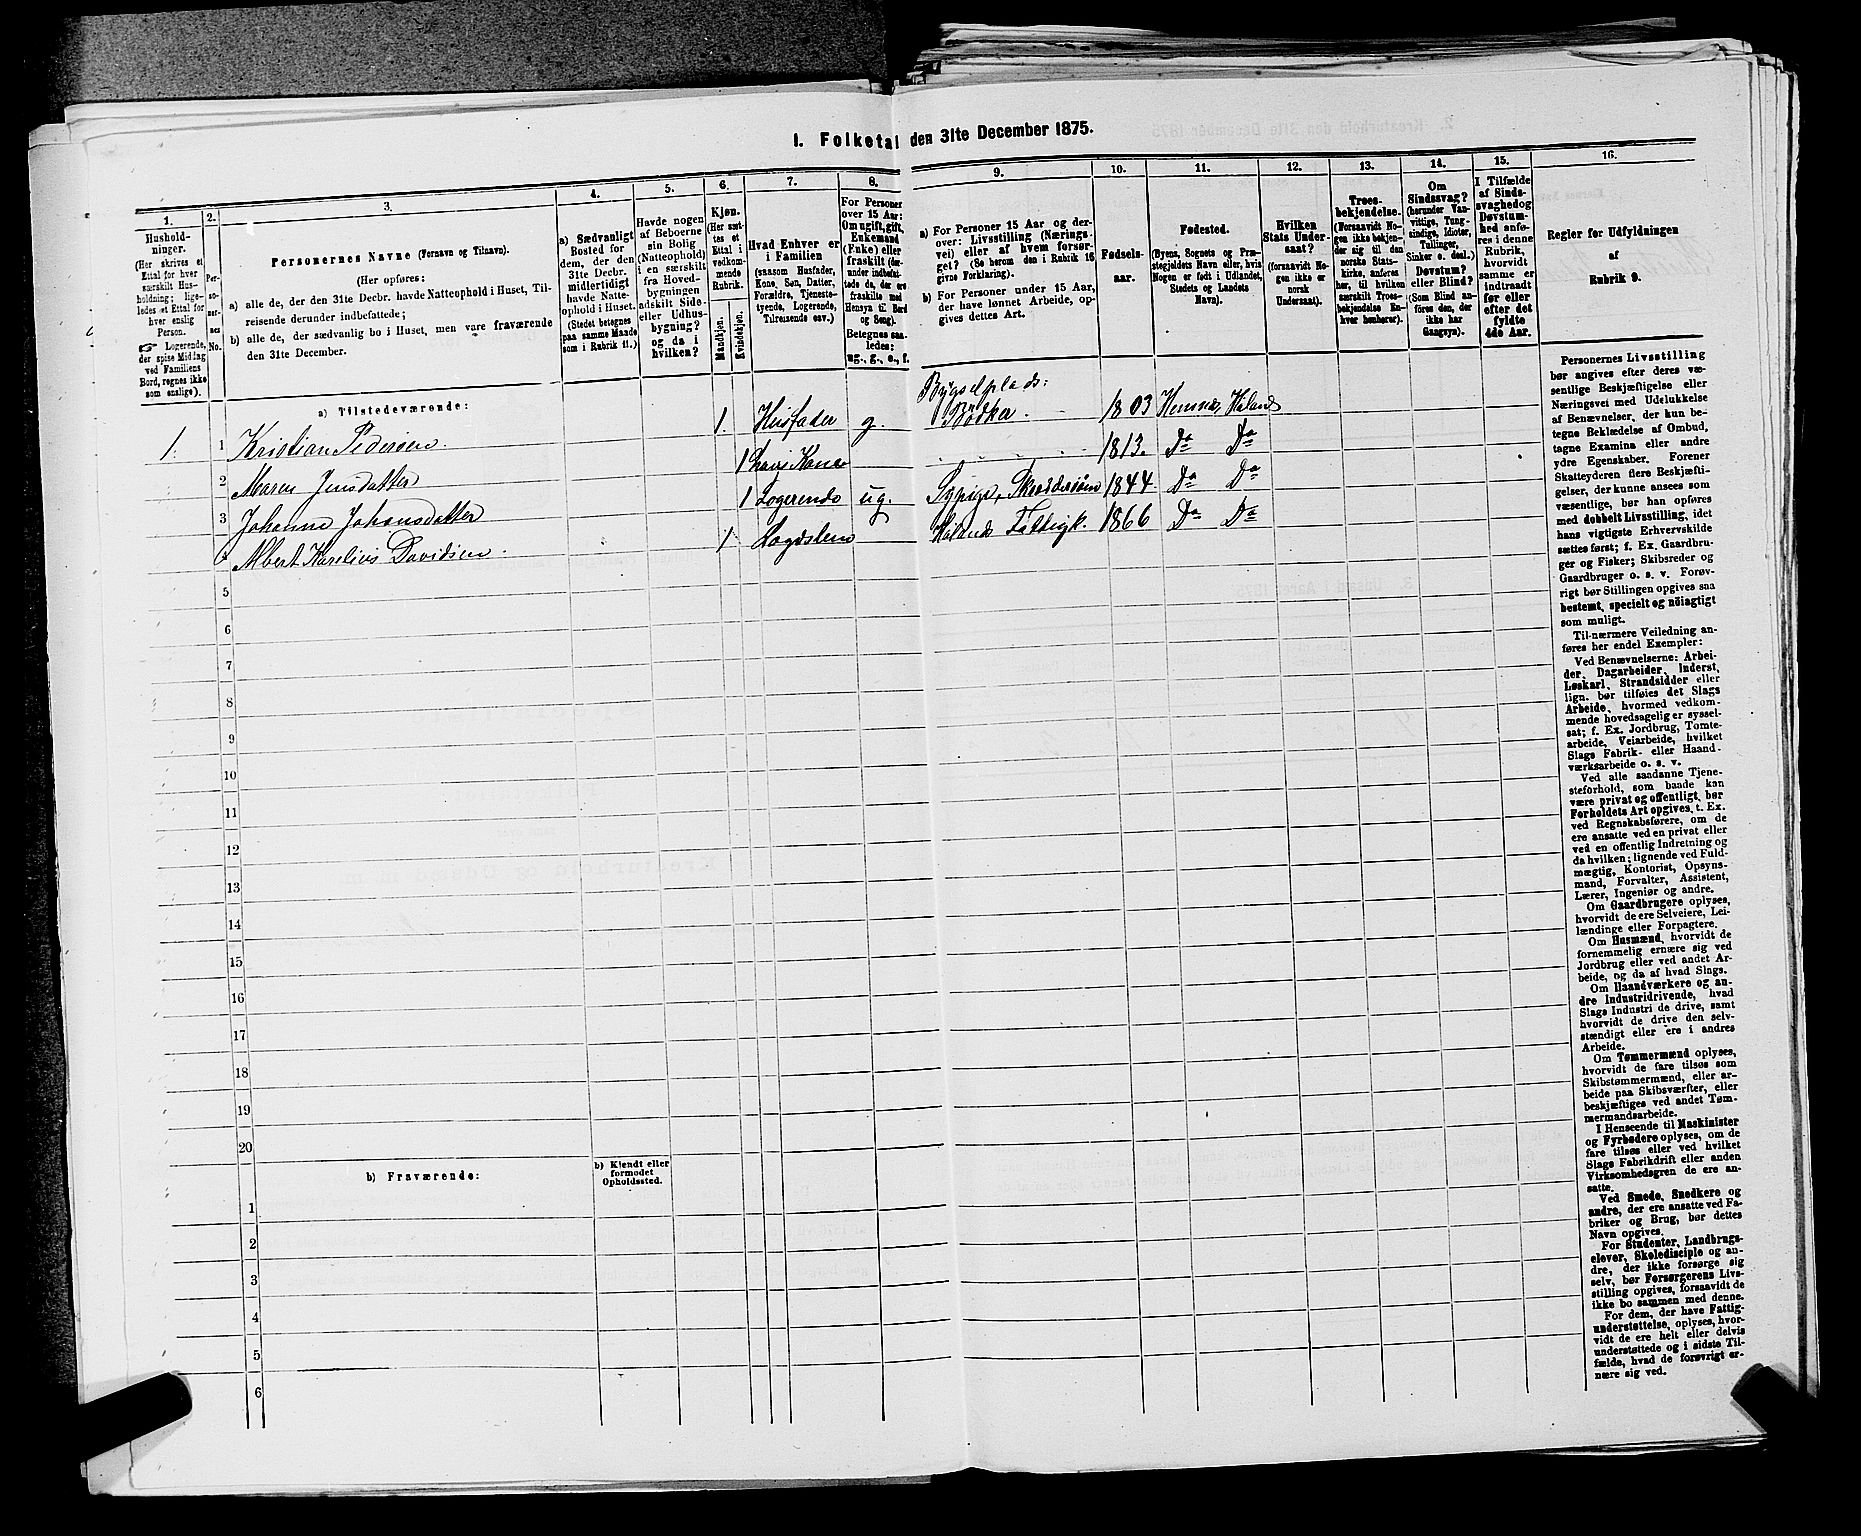 1. Folketal den 31te December 1875.
1.
Hushold-
ninger.
(Her skrives et
Ettal for hver
særskilt Hus-
holdning; lige-
ledes et Ettal for
hver enslig
Person.
☞ Logerende,
der spise Middag
ved Familiens
Bord, regnes ikke
som enslige).
2.
Per-
so-
ner-
nes
No.
3.
Personernes Navne (Fornavn og Tilnavn).
(Her opføres:
a) alle de, der den 31te Decbr. havde Natteophold i Huset, Til-
reisende derunder indbefattede;
b) alle de, der sædvanlig bo i Huset, men vare fraværende
den 31te December.
4.
a) Sædvanligt
Bosted for
dem, der den
31te Decbr.
midlertidigt
havde Natte-
ophold i Huset.
(Stedet betegnes
paa samme Maade
som i Rubrik 11.)
5.
Havde nogen
af Beboerne
sin Bolig
(Natteophold)
i en særskilt
fra Hoved-
bygningen
adskilt Side-
eller Udhus-
bygning?
og da i
hvilken?
6.
Kjøn.
(Her sæt-
tes et
Ettal i
vedkom-
mende
Rubrik.
Mandkjøn.
Kvindekjøn.
7.
Hvad Enhver er
i Familien
(saasom Husfader,
Kone, Søn, Datter,
Forældre, Tjeneste-
tyende, Logerende,
Tilreisende osv.)
8.
For Personer
over 15 Aar:
Om ugift, gift,
Enkemand
(Enke) eller
fraskilt (der-
under indbefat-
tede de, der ere
fraskilte med
Hensyn til Bord
og Seng).
Betegnes saa-
ledes:
ug., g., e., f.
9.
a) For Personer 15 Aar og der-
over: Livsstilling (Nærings-
vei) eller af hvem forsør-
get? (Se herom den i Rubrik 16
givne Forklaring).
b) For Personer under 15 Aar,
der have lønnet Arbeide, op-
gives dettes Art.
10.
Fødsels-
aar.
11.
Fødested.
(Byens, Sognets og Præ-
stegjeldets Navn eller, hvis
Nogen er født i Udlandet,
Stedets og Landets
Navn).
12.
Hvilken
Stats Under-
saat?
(forsaavidt No-
gen ikke er
norsk
Undersaat).
13.
Troes-
bekjendelse.
(Forsaavidt No-
gen ikke bekjen-
der sig til den
norske Stats-
kirke, anføres
her, til hvilken
særskilt Troes-
bekjendelse En-
hver henhører).
14.
Om
Sindssvag?
(herunder Van-
vittige, Tung-
sindige, Idioter,
Tullinger,
Sinker o. desl.)
Døvstum?
eller Blind?
(Som Blind an-
føres den, der
ikke har
Gangsyn).
15.
I Tilfælde
af Sinds-
svaghed og
Døvstum-
hed anfø-
res i denne
Rubrik,
hvorvidt
samme er
indtraadt
før eller
efter det
fyldte
4de Aar.
16.
Regler for Udfyldningen
af
Rubrik 9.
a) Tilstedeværende:
Bygselplads:
1. 1 Kristian Pedersen 1 Husfader g. Bødker 1803 Hemnæs, Høland
2 Maren Jensdatter 1 hans Kone 1813. Do Do
3 Johanne Johansdatter 1 Logerende ug. Sypige, Skræddersøm 1844 Do Do
4 Albert Karelius Davidsen. 1 Lægdslem Hølands Fattigk. 1866 Do Do
5
6
7
8
9
10
11
12
13
14
15
16
17
18
19
20
b) Fraværende:
b) Kjendt eller
formodet
Opholdssted.
1
2
3
4
5
6
Personernes Livsstilling
bør angives efter deres væ-
sentlige Beskjæftigelse eller
Næringsvei med Udelukkelse
af Benævnelser, der kun be-
tegne Beklædelse af Ombud,
tagne Examina eller andre
ydre Egenskaber. Forener
Skatteyderen flere Beskjæfti-
gelser, der kunne ansees som
væsentlige, bør han opføres
med dobbelt Livsstilling, idet
hans vigtigste Erhvervskilde
sættes først; f. Ex. Gaardbru-
ger og Fisker; Skibsreder og
Gaardbruger o. s. v. Forøv-
rigt bør Stillingen opgives saa
bestemt, specielt og nøiagtigt
som muligt.
Til nærmere Veiledning an-
føres her endel Exempler:
Ved Benævnelserne: Arbei-
der, Dagarbeider, Inderst,
Løskarl, Strandsidder eller
lign. bør tilføies det Slags
Arbeide, hvormed vedkom-
mende hovedsagelig er syssel-
sat; f. Ex. Jordbrug, Tomte-
arbeide, Veiarbeide, hvilket
Slags Fabrik- eller Haand-
værksarbeide o. s. v.
Ved alle saadanne Tjene-
steforhold, som baade kan
være privat og offentligt, bør
Forholdets Art opgives, t. Ex.
ved Regnskabsførere, om de
ere ansatte ved en privat eller
ved en offentlig Indretning og
da hvilken; lignende ved Fuld-
mægtig, Kontorist, Opsyns-
mand, Forvalter, Assistent,
Lærer, Ingeniør og andre.
Om Gaardbrugere oplyses,
hvorvidt de ere Selveiere, Lei-
lændinge eller Forpagtere.
Om Husmænd, hvorvidt de
fornemmelig ernære sig ved
Jordbrug eller ved andet Ar-
beide, og da af hvad Slags.
Om Haandværkere og an-
dre Industridrivende, hvad
Slags Industri de drive, samt
hvorvidt de drive den selv-
stændigt eller ere i andres
Arbeide.
Om Tømmermænd oplyses,
hvorvidt de fare tilsøs som
Skibstømmermænd, eller ar-
beide paa Skibsværfter, eller
beskjæftiges ved andet Tøm-
mermandsarbeide.
I Henseende til Maskinister
og Fyrbødere oplyses, om de
fare tilsøs eller ved hvilket
Slags Fabrikdrift eller anden
Virksomhedsgren de ere an-
satte.
Ved Smede, Snedkere og
andre, der ere ansatte ved Fa-
briker og Brug, bør dettes
Navn opgives.
For Studenter, Landbrugs-
elever, Skoledisciple og an-
dre, der ikke forsørge sig
selv, bør Forsørgerens Livs-
stilling opgives, forsaavidt de
ikke bo sammen med denne.
For dem, der have Fattig-
understøttelse, oplyses, hvor-
vidt de ere helt eller delvis
understøttede og i sidste Til-
fælde, hvad de forøvrigt er-
nære sig ved.